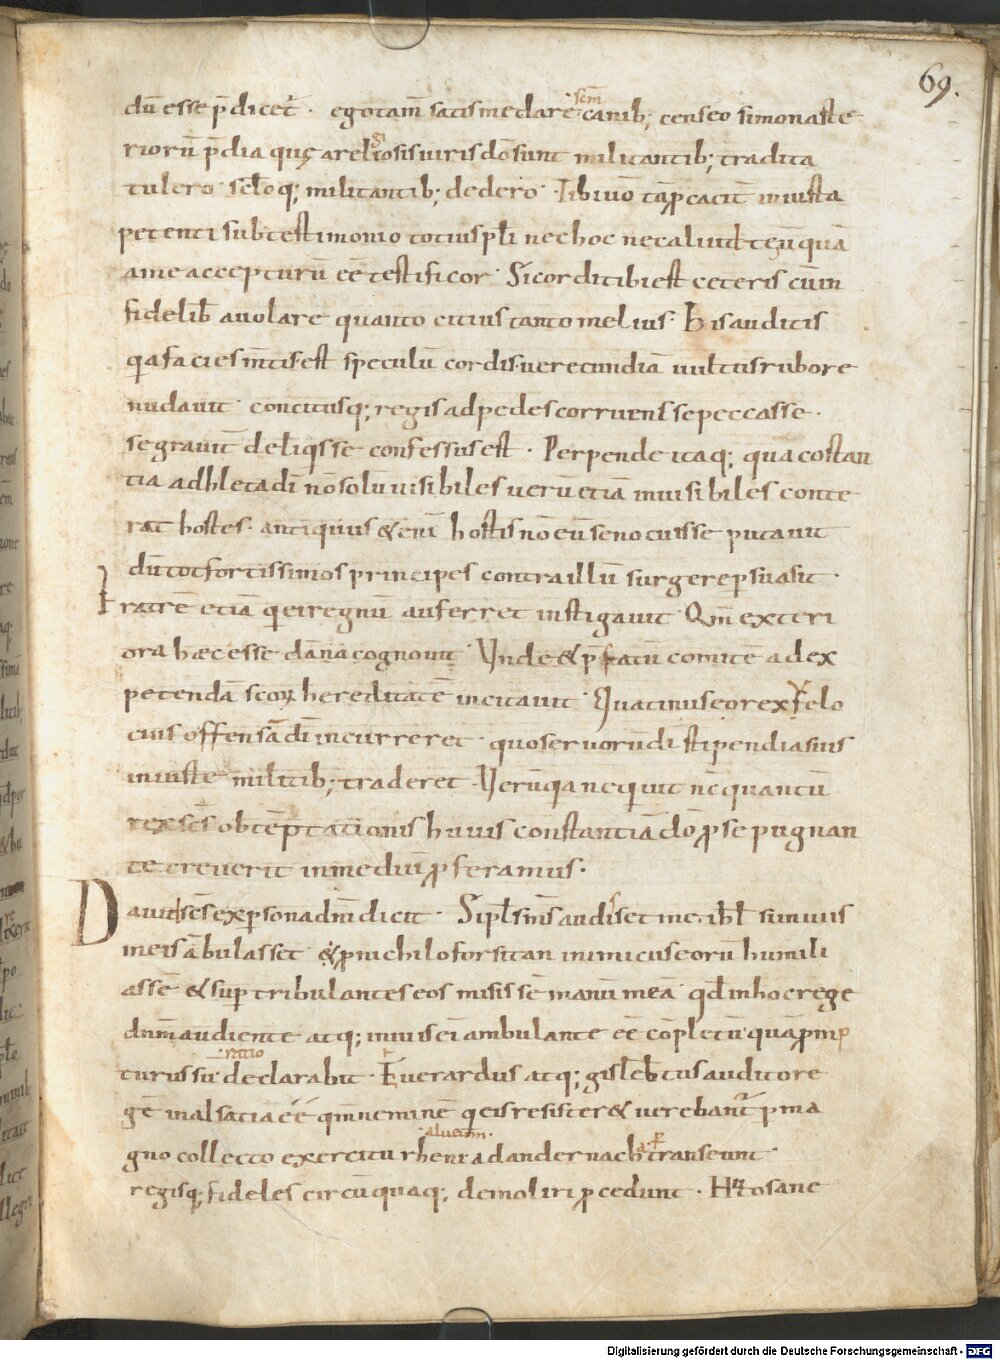 69.
dũ esse p̄dicet᷑ · ego tam̄ satis me dare sc̄m canib; censeo si monaste
riorũ p̄dia quę a religiosis uiris dō sunt militantib; tradita
tulero · sc̄loq; militantib; dedero · Tibi uō tā ꝓcacit̄ iniusta
petenti sub testimonio totius pl̄i nec hoc nec aliud te ũquā
a me accepturũ eē testificor · Si cordi tibi est ceteris cũ in
fidelib; auolare quanto citius tanto melius · His auditis
q̄a facies m̄tis est speculũ cordis · uerecundiā uultus rubore
nudauit · concitusq; regis ad pedes corruens se peccasse ·
se grauit̄ deliq̄sse confessus est · Perpende itaq; qua cōstan
tia adhleta dī nō solũ uisibiles uerũ etiā inuisibiles conte
rat hostes · antiquus & eni hostis nō eũ se nocuisse putauit
dũ tot fortissimos principes contra illũ surgere p̱suasit ·
Fratrē etiā q̄ ei regnũ auferret instigauit · Qm̄ exteri
ora hæc esse dāna cognouit · Vnde & p̄fatũ comitē ad ex
petendā sc̄oꝝ hereditatē incitauit · Quatinus eo rex velo
cius offensā dī incurreret · quo seruorũ dī stipendia suis
iniuste militib; traderet · Verũ q̄a nequit nē quantũ
rex sc̄s ob tēptationis huius constantiā dō ꝓ se pugnan
te creuerit in mediũ ꝓferamus ·
Dauit sc̄s ex p̱sona dn̄i dicit · Si pl̄s m̄s audisset me isrl̄ si in uiis
meis ābulasset · & ꝓ nichilo forsitan inimicus eorũ humili
assē & sup̱ tribulantes eos misissē manũ meā · qd̄ in hoc rege
dn̄m audiente atq; in uiis ei ambulante eē cōpletũ quā ꝓmp
turus sũ ratio declarabit · Euerardus atq; gislebtus auditore
gē in alsatia eē qm̄ neminē q̄ eis resister& uerebant᷑ p̱ ma
gno collecto exercitu rheni alueum · ad andernacha p̱transeunt ·
regisq; fideles circũquaq; demoliri ꝓcedunt · Hr̄to sane
Digitalisierung gefördert durch die Deutsche Forschungsgemeinschaft - DFG